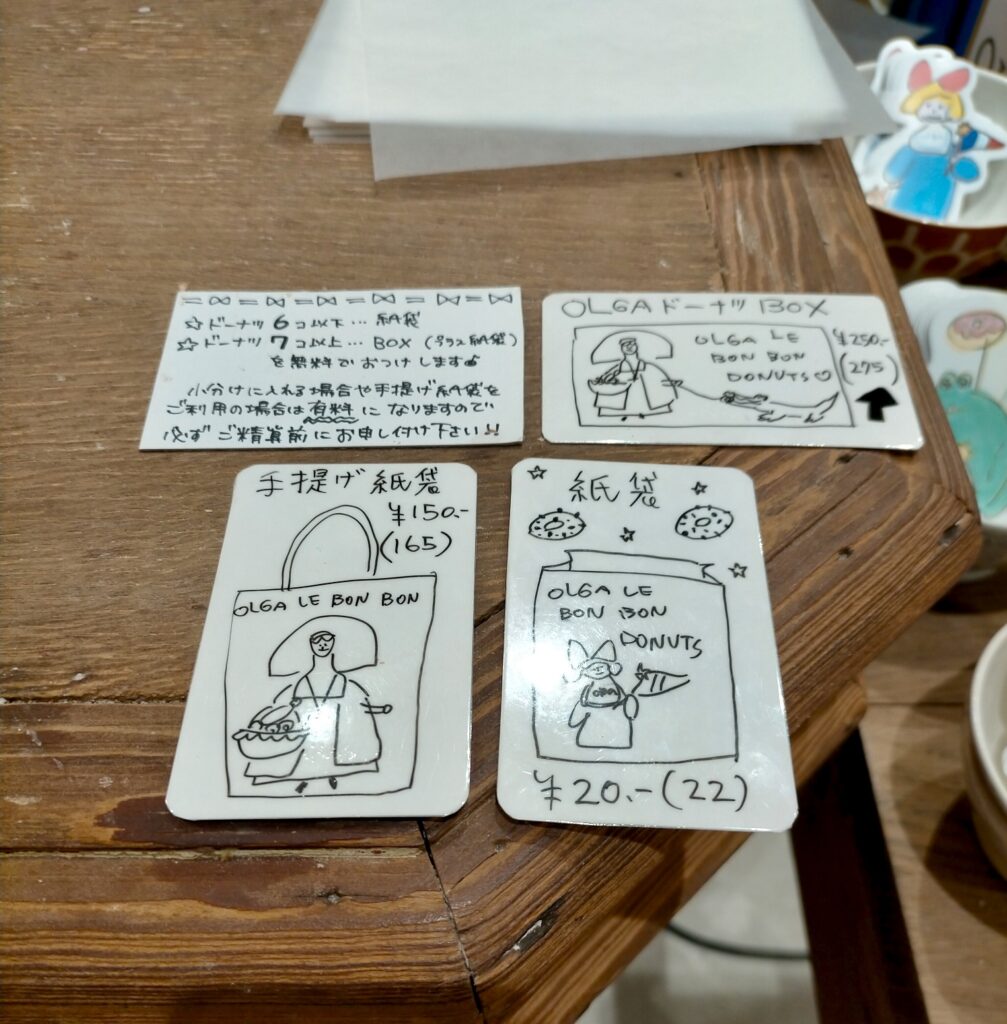 ☆ドーナツ 6コ以下… 紙袋
☆ドーナツ 7コ以上… BOX (プラス紙袋)
を無料でおつけします
小分けに入れる場合や手提げ紙袋を
ご利用の場合は有料になりますので
必ずご精算前にお申し付け下さい!!
OLGAドーナツBOX
OLGA LE
BON BON
DONUTS♡
¥250.-
(275)
手提げ紙袋
¥150.-
(165)
OLGA LE BON BON
紙袋
OLGA LE
BON BON
DONUTS
¥20.-(22)